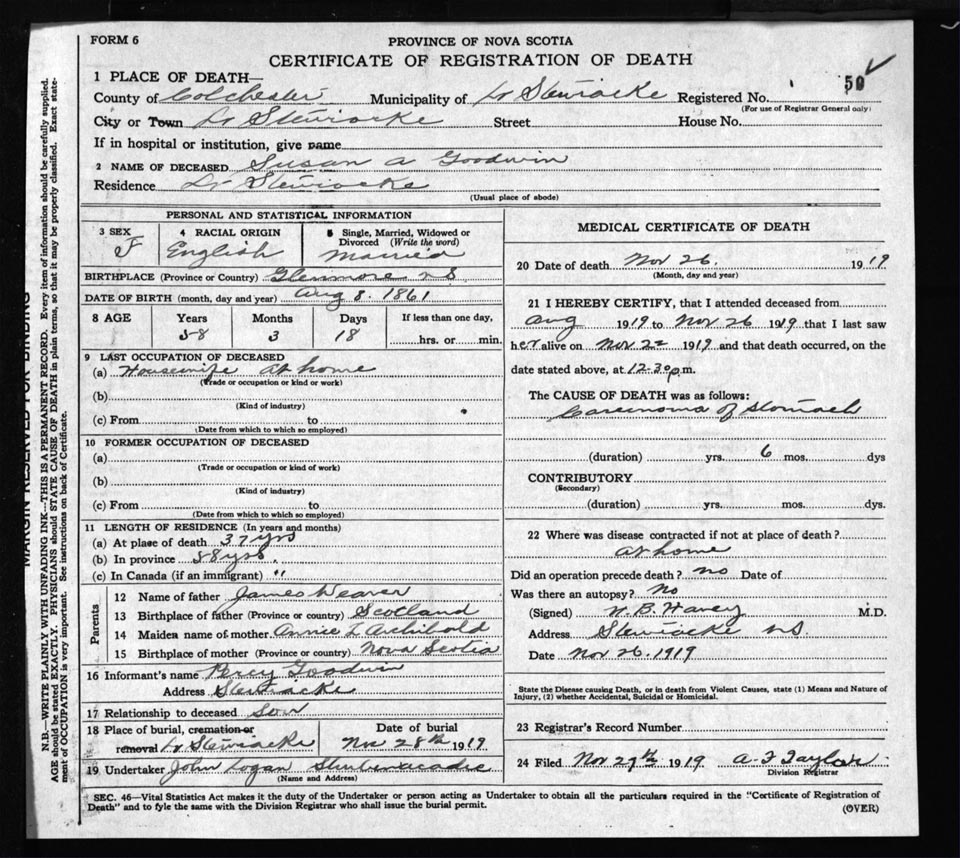 FORM 6
PROVINCE OF NOVA SCOTIA
CERTIFICATE OF REGISTRATION OF DEATH
1 PLACE OF DEATH—
County of Colchester Municipality of Lr Stewiacke Registered No. 50
(For use of Registrar General only)
City or Town Lr Stewiacke Street House No.
If in hospital or institution, give name
2 NAME OF DECEASED Susan A Goodwin
Residence Lr Stewiacke
(Usual place of abode)
PERSONAL AND STATISTICAL INFORMATION
3 SEX 4 RACIAL ORIGIN 5 Single, Married, Widowed or
Divorced (Write the word)
F English Married
BIRTHPLACE (Province or Country) Glenmore N S
DATE OF BIRTH (month, day and year) Aug 8. 1861
8 AGE Years Months Days If less than one day,
58 3 18 hrs. or min.
9 LAST OCCUPATION OF DECEASED
(a) Housewife At home
(Trade or occupation or kind or work)
(b)
(Kind of industry)
(c) From to
(Date from which to which so employed)
10 FORMER OCCUPATION OF DECEASED
(a)
(Trade or occupation or kind of work)
(b)
(Kind of industry)
(c) From to
(Date from which to which so employed)
11 LENGTH OF RESIDENCE (In years and months)
(a) At place of death 37 yrs
(b) In province 58 yrs.
(c) In Canada (if an immigrant) "
Parents
12 Name of father James Weaver
13 Birthplace of father (Province or country) Scotland
14 Maiden name of mother Annie L Archibold
15 Birthplace of mother (Province or country) Nova Scotia
16 Informant's name Percy Goodwin
Address Stewiacke
17 Relationship to deceased Son
18 Place of burial, cremation or Date of burial
removal Lr Stewiacke Nov 28th 1919
19 Undertaker John Logan Shubenacadie
(Name and Address)
MEDICAL CERTIFICATE OF DEATH
20 Date of death Nov 26. 1919
(Month, day and year)
21 I HEREBY CERTIFY, that I attended deceased from
Aug 1919 to Nov 26 1919 that I last saw
her alive on Nov 22 1919 and that death occurred, on the
date stated above, at 12-30 p.m.
The CAUSE OF DEATH was as follows:
Carcinoma of Stomach
(duration) yrs. 6 mos. dys
CONTRIBUTORY
(Secondary)
(duration) yrs. mos. dys.
22 Where was disease contracted if not at place of death?
At home
Did an operation precede death? no Date of
Was there an autopsy? No
(Signed) M.D.
Address Stewiacke NS
Date Nov 26. 1919
State the Disease causing Death, or in death from Violent Causes, state (1) Means and Nature of
Injury, (2) whether Accidental, Suicidal or Homicidal.
23 Registrar's Record Number
24 Filed Nov 27th 1919 A. F Taylor
Division Registrar
SEC. 46—Vital Statistics Act makes it the duty of the Undertaker or person acting as Undertaker to obtain all the particulars required in the "Certificate of Registration of
Death" and to fyle the same with the Division Registrar who shall issue the burial permit.
(OVER)
MARGIN RESERVED FOR BINDING
N.B.—WRITE PLAINLY WITH UNFADING INK—THIS IS A PERMANENT RECORD. Every item of information should be carefully supplied.
AGE should be stated EXACTLY. PHYSICIANS should STATE CAUSE OF DEATH in plain terms, so that it may be properly classified. Exact state-
ment of OCCUPATION is very important. See instructions on back of Certificate.